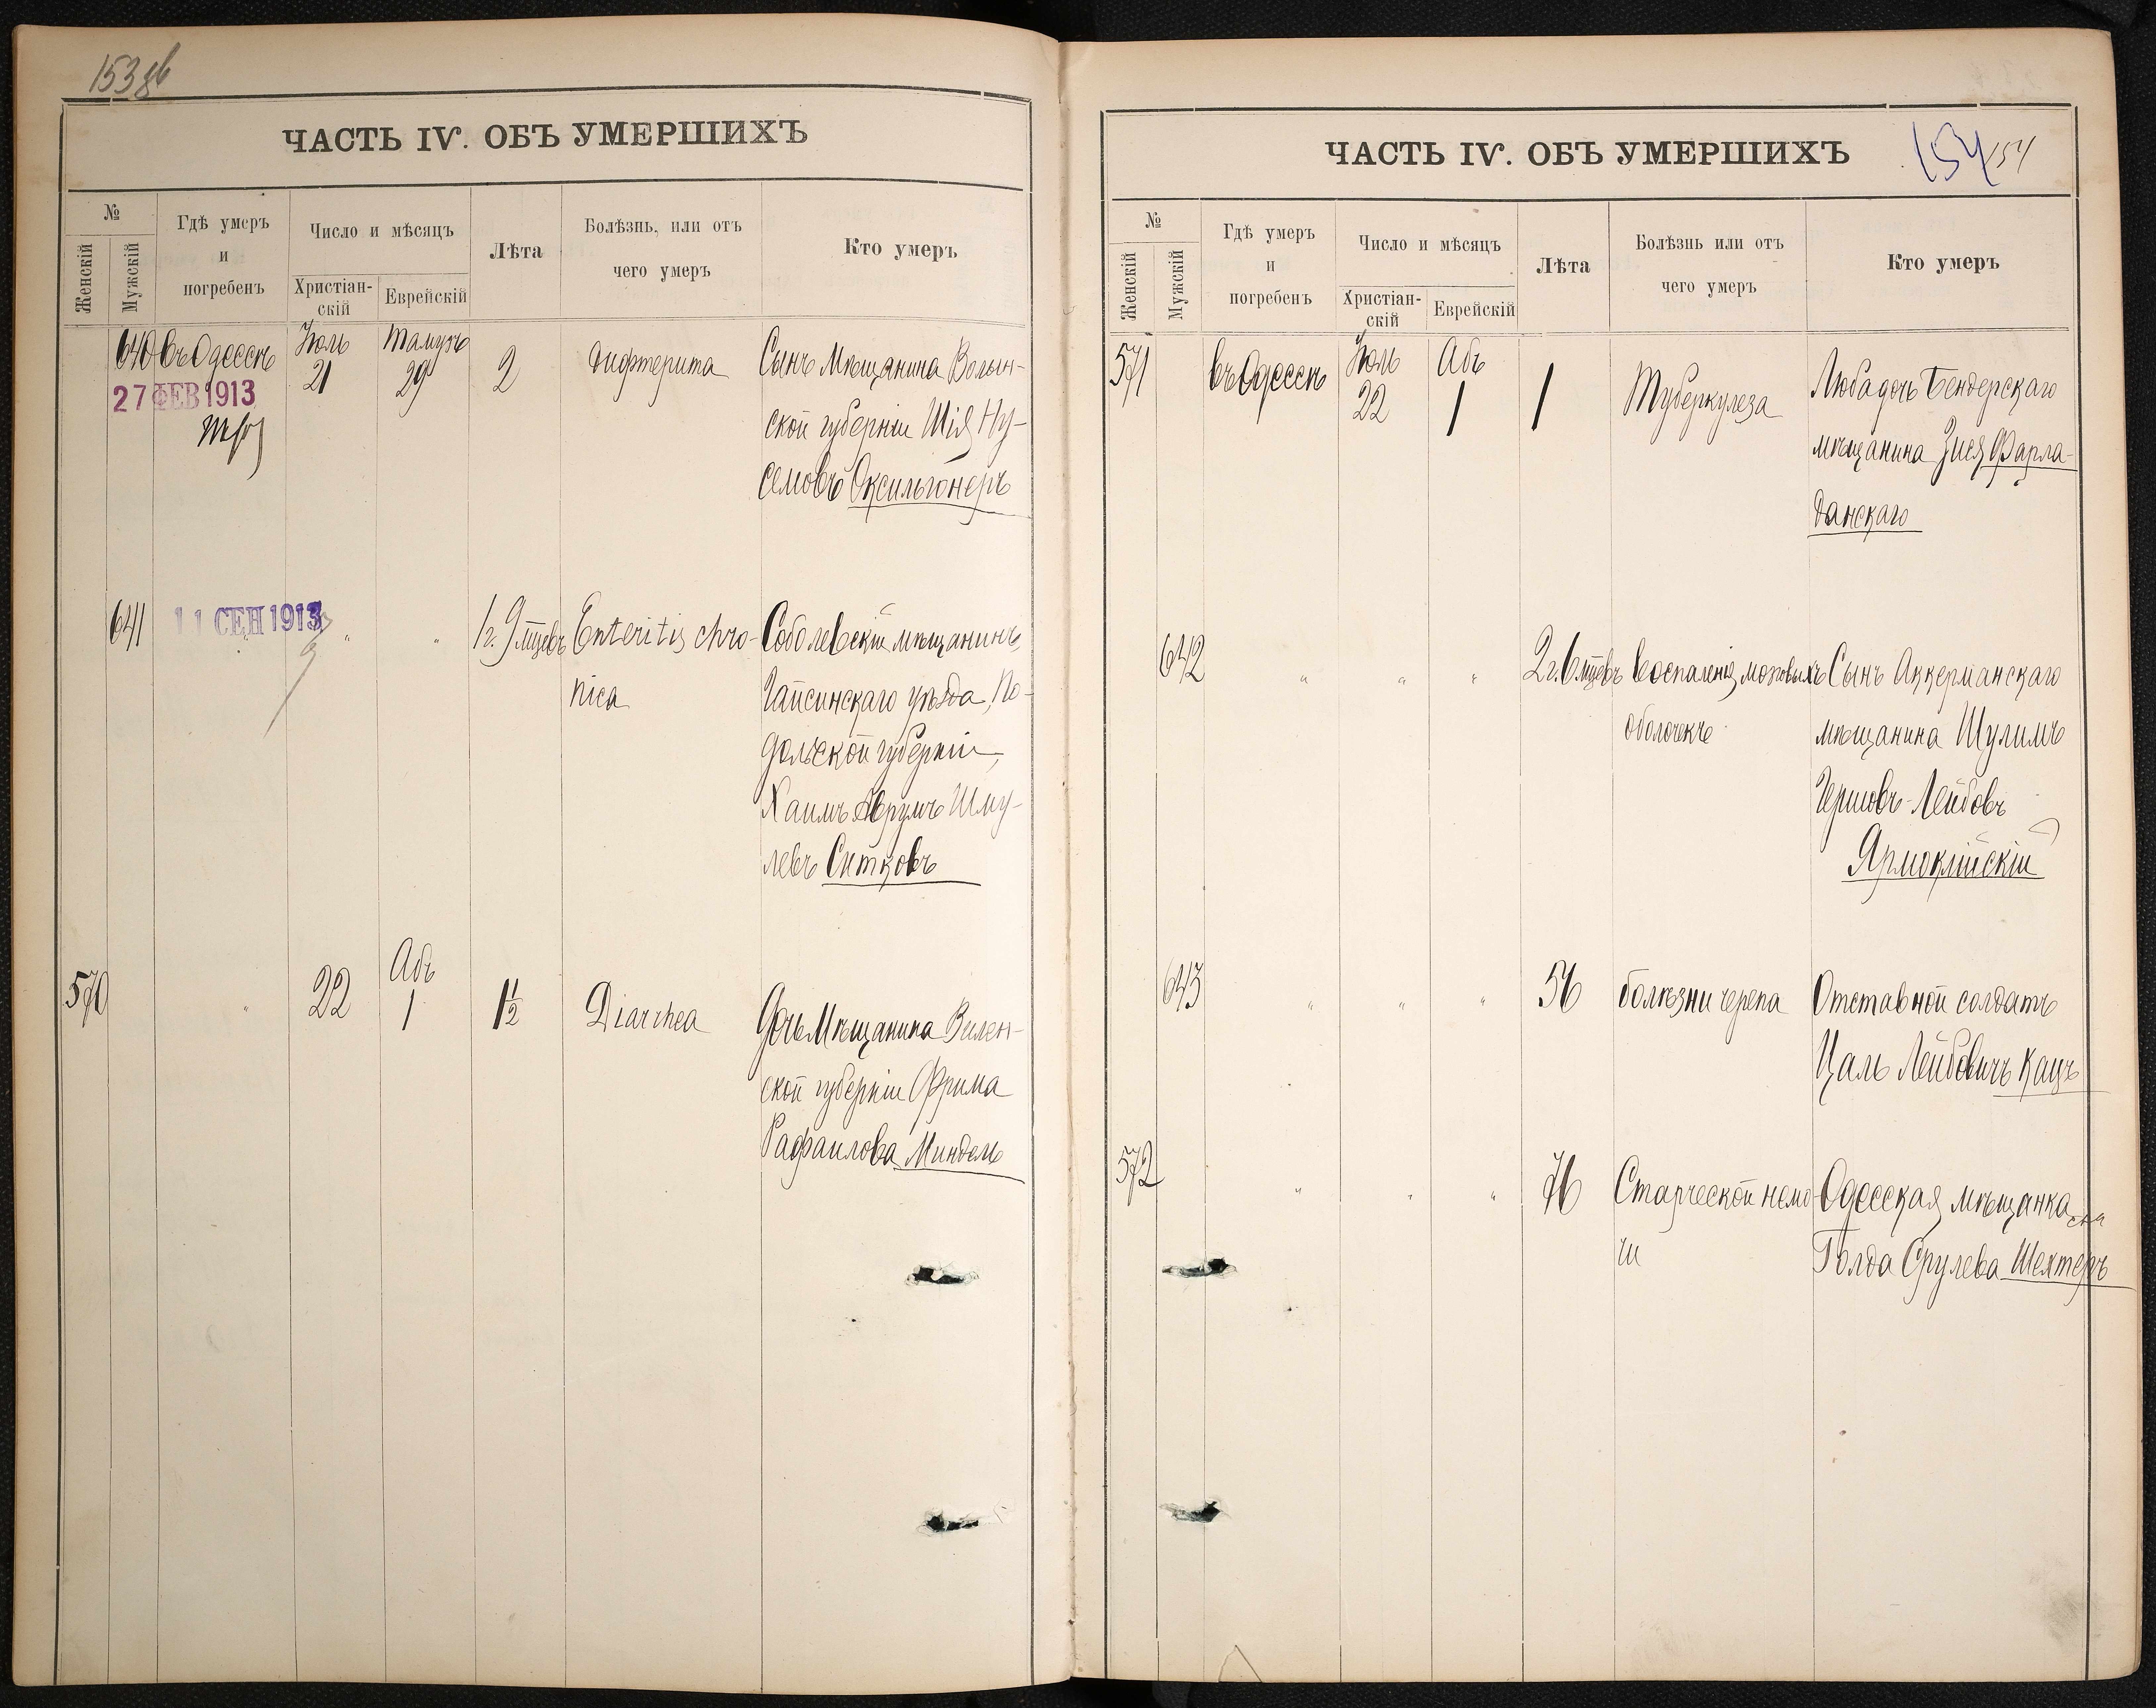 153об
ЧАСТЬ IV. ОБЪ УМЕРШИХЪ
№
Женскій
Мужскій
Гдѣ умеръ
и
погребенъ
Число и мѣсяцъ
Христіан-
скій
Еврейскій
Лѣта
Болѣзнь, или отъ
чего умеръ
Кто умеръ
640 въ Одессѣ Іюль 21 Тамузъ 29 2 дифтерита Сынъ Мѣщанина Волын-
27 ФЕВ 1913
ской губерніи Шія Ну-
семовъ Оксильгонеръ
641 11 СЕН 1913 " " 1 г. 9 мцевъ Enteritis chro- Соболевскій мѣщанинъ,
nica Гайсинскаго уѣзда, По-
дольской губерніи,
Хаимъ Аврумъ Шму-
левъ Ситковъ
570 " 22 Абъ 1 1½ Diarrhea Дочь Мѣщанина Вилен-
ской губерніи Фрима
Рафаилова Миндель
ЧАСТЬ IV. ОБЪ УМЕРШИХЪ
154 154
№
Женскій
Мужскій
Гдѣ умеръ
и
погребенъ
Число и мѣсяцъ
Христіан-
скій
Еврейскій
Лѣта
Болѣзнь или отъ
чего умеръ
Кто умеръ
571 въ Одессѣ Іюль 22 Абъ 1 1 Туберкулеза Люба дочь Бендерскаго
мѣщанина Зися Фарла-
данскаго
642 " " " 2 г. 6 мцевъ Воспаленія мозговыхъ Сынъ Аккерманскаго
оболочекъ мѣщанина Шулимъ
Гершовъ-Лейбовъ
Ярмоклійскій
643 " " " 56 болѣзни черепа Отставной солдатъ
Цаль Лейбовичъ Кацъ
572 " " " 76 Старческой немо- Одесская мѣщанка
чи Голда Срулева Шехтеръ